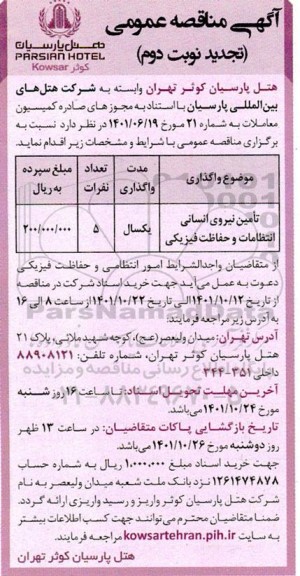 آگهی مناقصه عمومی
(تجدید نوبت دوم)
هتل پارسیان
PARSIAN HOTEL
کوثر Kowsar
هتل پارسیان کوثر تهران وابسته به شرکت هتل‌های
بین‌المللی پارسیان با استناد به مجوزهای صادره کمیسیون
معاملات به شماره ۲۱ مورخ ۱۴۰۱/۰۶/۱۹ در نظر دارد نسبت به
برگزاری مناقصه عمومی با شرایط و مشخصات زیر اقدام نماید.
موضوع واگذاری
مدت واگذاری
تعداد نفرات
مبلغ سپرده به ریال
تأمین نیروی انسانی انتظامات و حفاظت فیزیکی
یکسال
۵
۲۰۰/۰۰۰/۰۰۰
از متقاضیان واجدالشرایط امور انتظامی و حفاظت فیزیکی
دعوت به عمل می‌آید جهت خرید اسناد شرکت در مناقصه
از تاریخ ۱۴۰۱/۱۰/۱۲ الی تاریخ ۱۴۰۱/۱۰/۲۲ از ساعت ۸ الی ۱۶
به آدرس زیر مراجعه فرمایند:
آدرس تهران: میدان ولیعصر(عج)، کوچه شهید ملائی، پلاک ۲۱
هتل پارسیان کوثر تهران، شماره تلفن: ۸۸۹۰۸۱۲۱
داخلی ۳۵۱-۳۴۴
آخرین مهلت تحویل اسناد: تا ساعت ۱۶ روز شنبه
مورخ ۱۴۰۱/۱۰/۲۴
تاریخ بازگشایی پاکات متقاضیان: در ساعت ۱۳ ظهر
روز دوشنبه مورخ ۱۴۰۱/۱۰/۲۶ می‌باشد.
جهت خرید اسناد مبلغ ۱.۰۰۰.۰۰۰ ریال به شماره حساب
۱۲۶۱۴۷۴۸۷۸ نزد بانک ملت شعبه میدان ولیعصر به نام
شرکت هتل پارسیان کوثر واریز و رسید واریزی ارائه گردد.
ضمنا متقاضیان محترم می‌توانند جهت کسب اطلاعات بیشتر
به سایت kowsartehran.pih.ir مراجعه فرمایند.
هتل پارسیان کوثر تهران